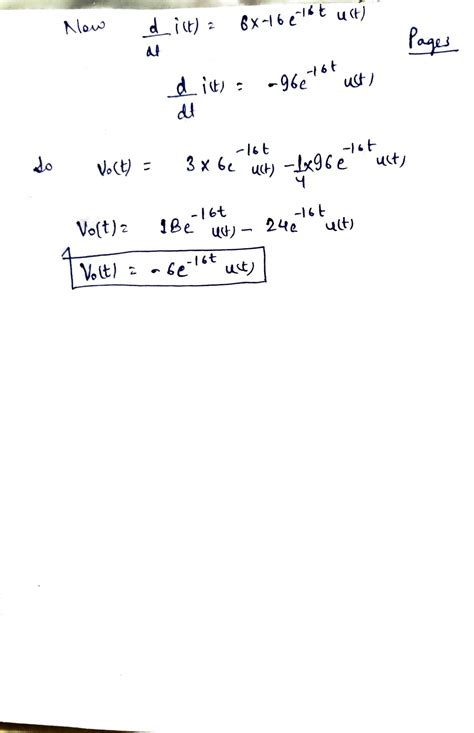 Now d/dt i(t) = 6x-16e^-16t u(t)
Pages
d/dt i(t) = -96e^-16t u(t)
So Vo(t) = 3x6e^-16t u(t) - 1/4x96e^-16t u(t)
Vo(t) = 18e^-16t u(t) - 24e^-16t u(t)
Vo(t) = -6e^-16t u(t)